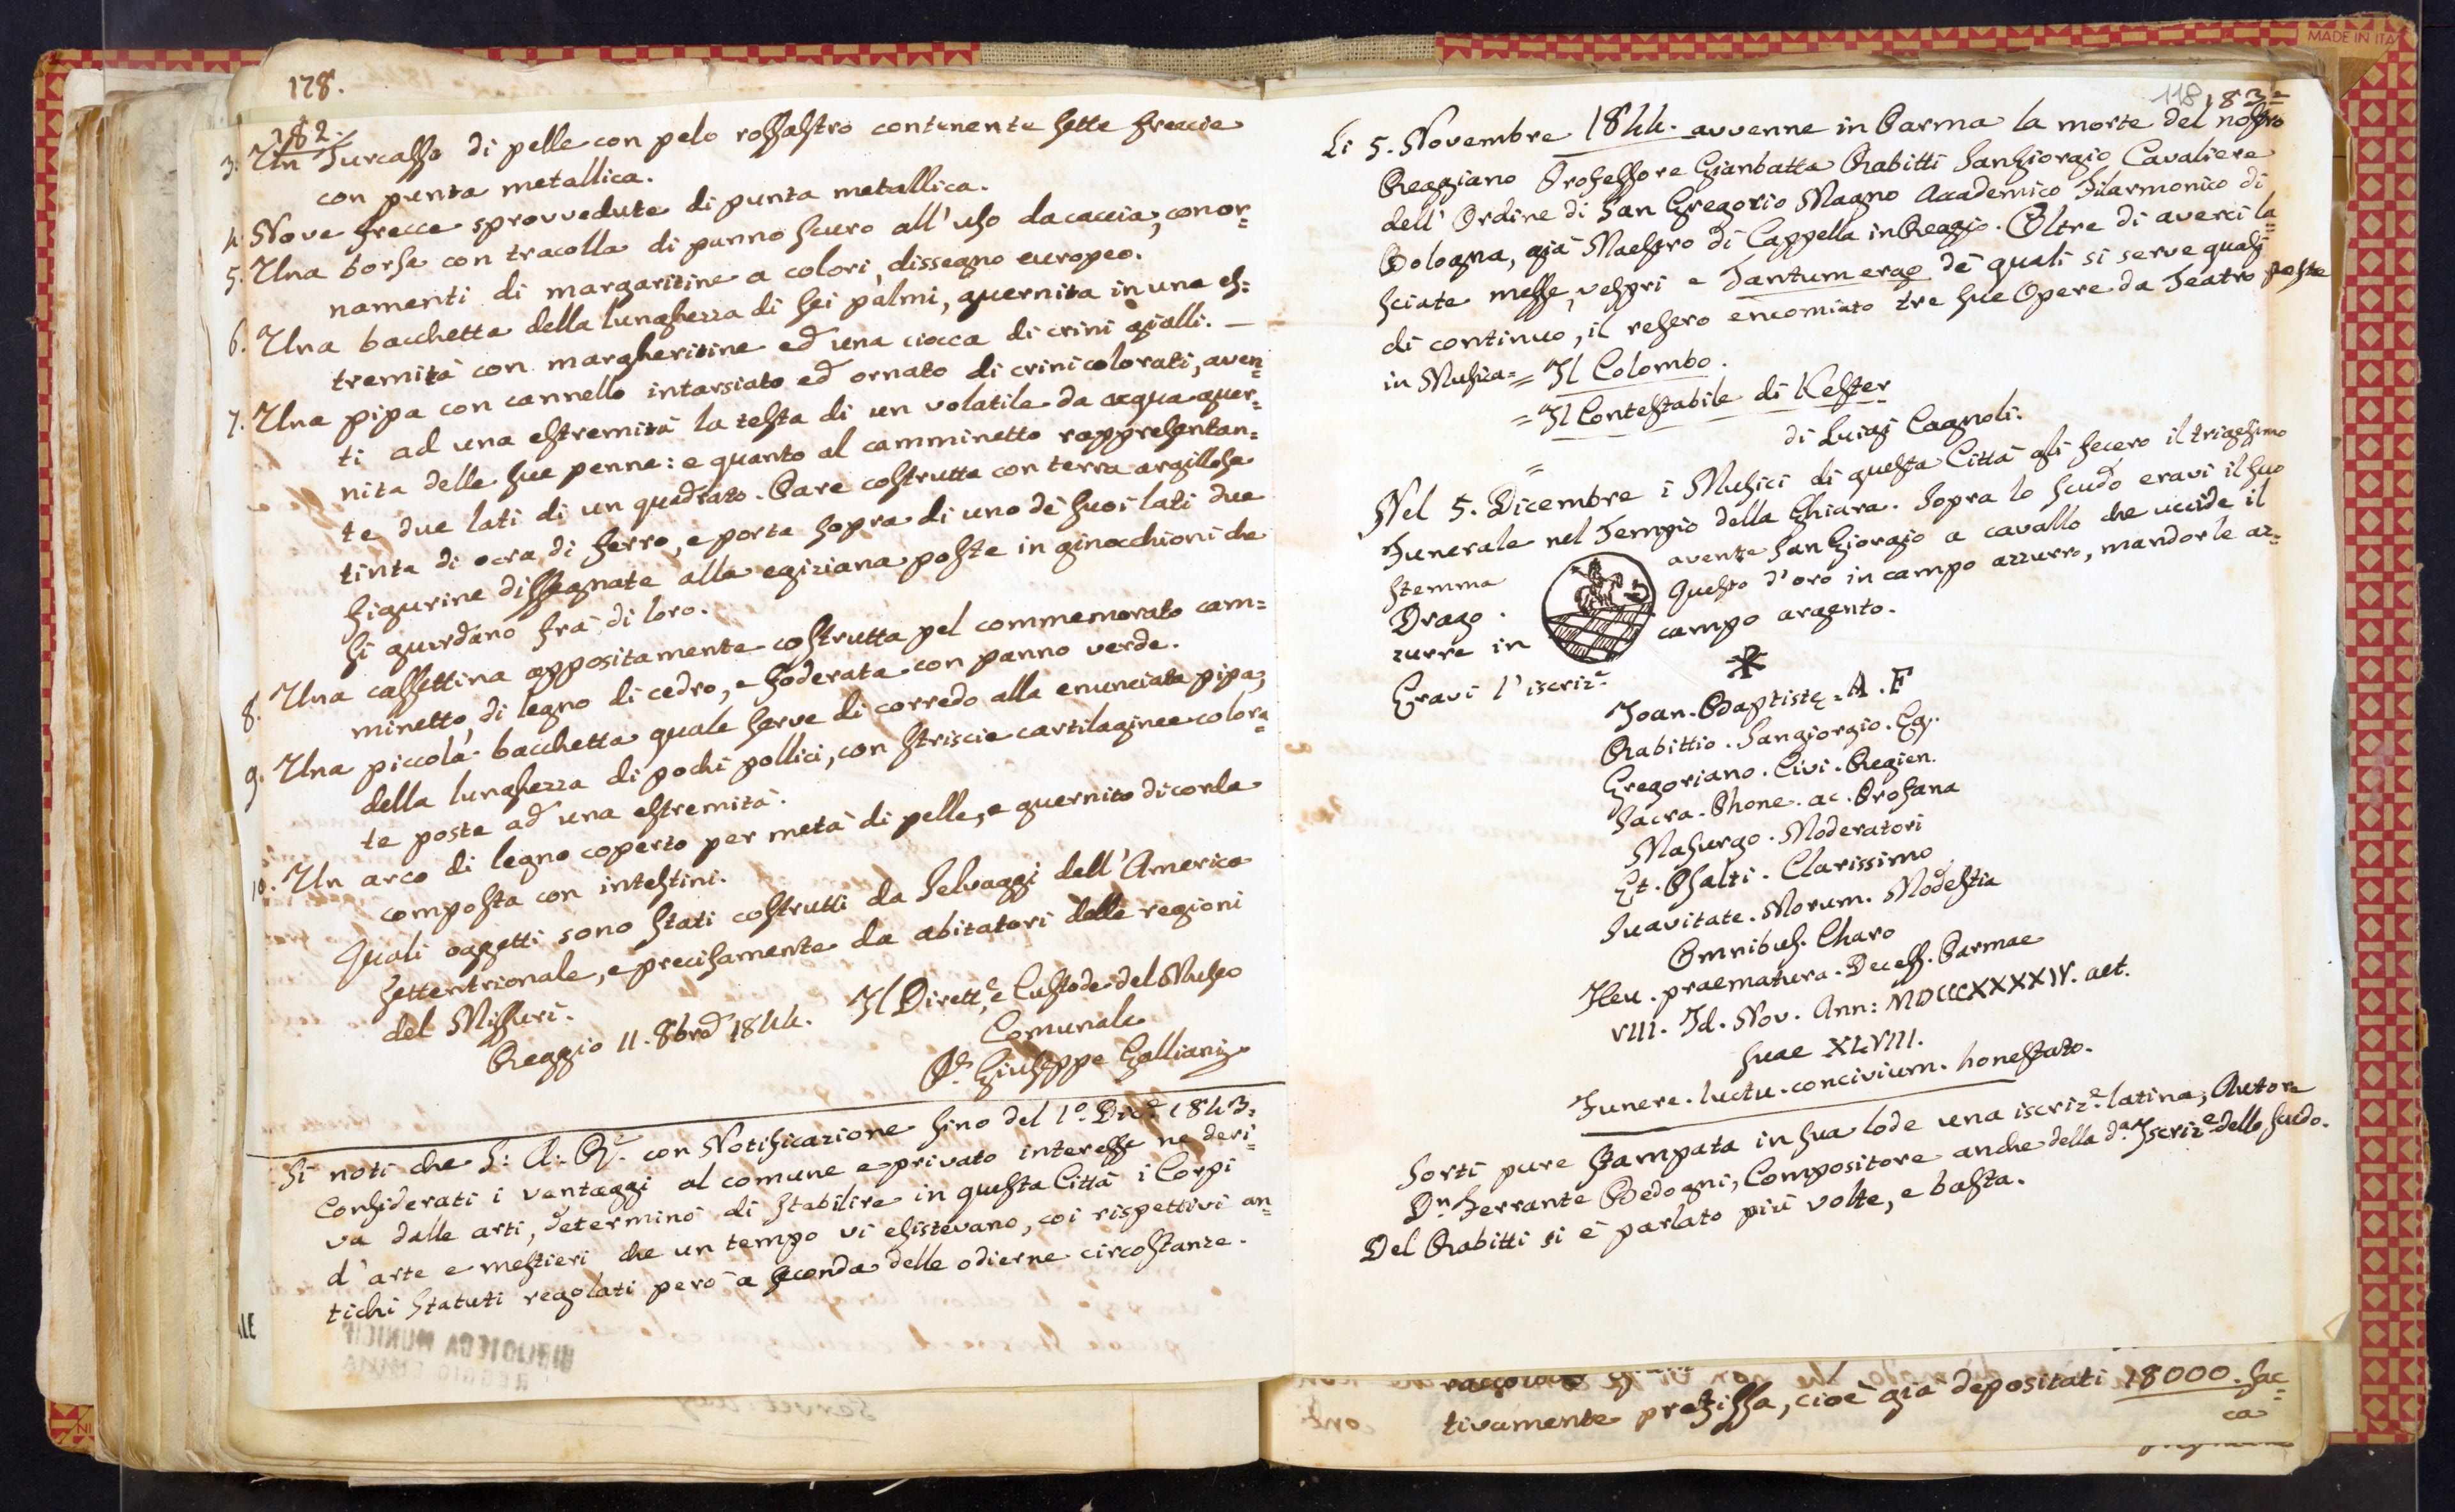 178.
182.
3. Un Turcasso di pelle con pelo rossastro contenente sette freccie
con punta metallica.
4. Nove frecce sprovvedute di punta metallica.
5. Una borsa con tracolla di panno scuro all'uso da caccia, con or=
namenti di margaritine a colori, dissegno europeo.
6. Una bacchetta della lunghezza di sei palmi, guernita in una es=
tremità con margheritine ed una ciocca di crini gialli. —
7. Una pipa con cannello intarsiato ed ornato di crini colorati, aven=
ti ad una estremità la testa di un volatile da acqua guer=
nita delle sue penne: e quanto al camminetto rappresentan=
te due lati di un quadrato. Pare costrutta con terra argillosa
tinta di ocra di ferro, e porta sopra di uno de' suoi lati due
figurine dissegnate alla egiziana poste in ginocchioni che
si guardano frà di loro.
8. Una cassettina appositamente costrutta pel commemorato cam=
minetto, di legno di cedro, e foderata con panno verde.
9. Una piccola bacchetta quale serve di corredo alla enunciata pipa,
della lunghezza di pochi pollici, con striscie cartilaginee colora=
te poste ad una estremità.
10. Un arco di legno coperto per metà di pelle, e guernito di corda
composta con intestini.
Quali oggetti sono stati costrutti da Selvaggi dell'America
settentrionale, e precisamente da abitatori delle regioni
del Missuri.
Reggio 11. 8bre 1844. Il Dirett.e e Custode del Museo
Comunale
Pr. Giuseppe Galliani
Si noti che S: A: R. con Notificazione sino del 1º. Dic.e 1843=
Considerati i vantaggi al comune e privato interesse ne deri=
va dalle arti, determinò di stabilire in questa Città i Corpi
d'arte e mestieri che un tempo vi esistevano, coi rispettivi an=
tichi Statuti regolati però a seconda delle odierne circostanze.
ALE
BIBLIOTECA MUNICIP
REGGIO EMILIA
MADE IN ITA
118
183=
Li 5. Novembre 1844. avvenne in Parma la morte del nostro
Reggiano Professore Gianbatta Rabitti Sangiorgio Cavaliere
dell'Ordine di San Gregorio Magno Accademico Filarmonico di
Bologna, già Maestro di Cappella in Reggio. Oltre di averci la=
sciate messe, vespri e Tantum ergo de' quali si serve quasi
di continuo, il resero encomiato tre sue Opere da Teatro poste
in Musica = = Il Colombo.
= Il Contestabile di Kester
di Luigi Cagnoli.
=
Nel 5. Dicembre i Musici di questa Città gli fecero il trigesimo
Funerale nel Tempio della Ghiara. Sopra lo scudo eravi il suo
stemma avente San Giorgio a cavallo che uccide il
Drago. Questo d'oro in campo azzurro, mandorle az=
zurre in campo argento.
Eravi l'iscriz.e
Joan. Baptistę. A. F
Rabittio. Sangiorgio. Eq.
Gregoriano. Civi. Regien.
Sacra. Phone. ac. Profana
Masurgo. Moderatori
Et. Psalti. Clarissimo
Suavitate. Morum. Modestia
Omnibus. Charo
Heu. praematura. Decess. Parmae
VIII. Id. Nov. Ann: MDCCCXXXXIV. aet.
suae XLVIII.
Funere. luctu. concivium. honestato.
Sortì pure stampata in sua lode una iscriz.e latina, Autore
Dn. Ferrante Bedogni, Compositore anche della da. Iscriz.e dello scudo.
Del Rabitti si è parlato più volte, e basta.
tivamente prefissa, cioè già depositati 18000. sac=
ca